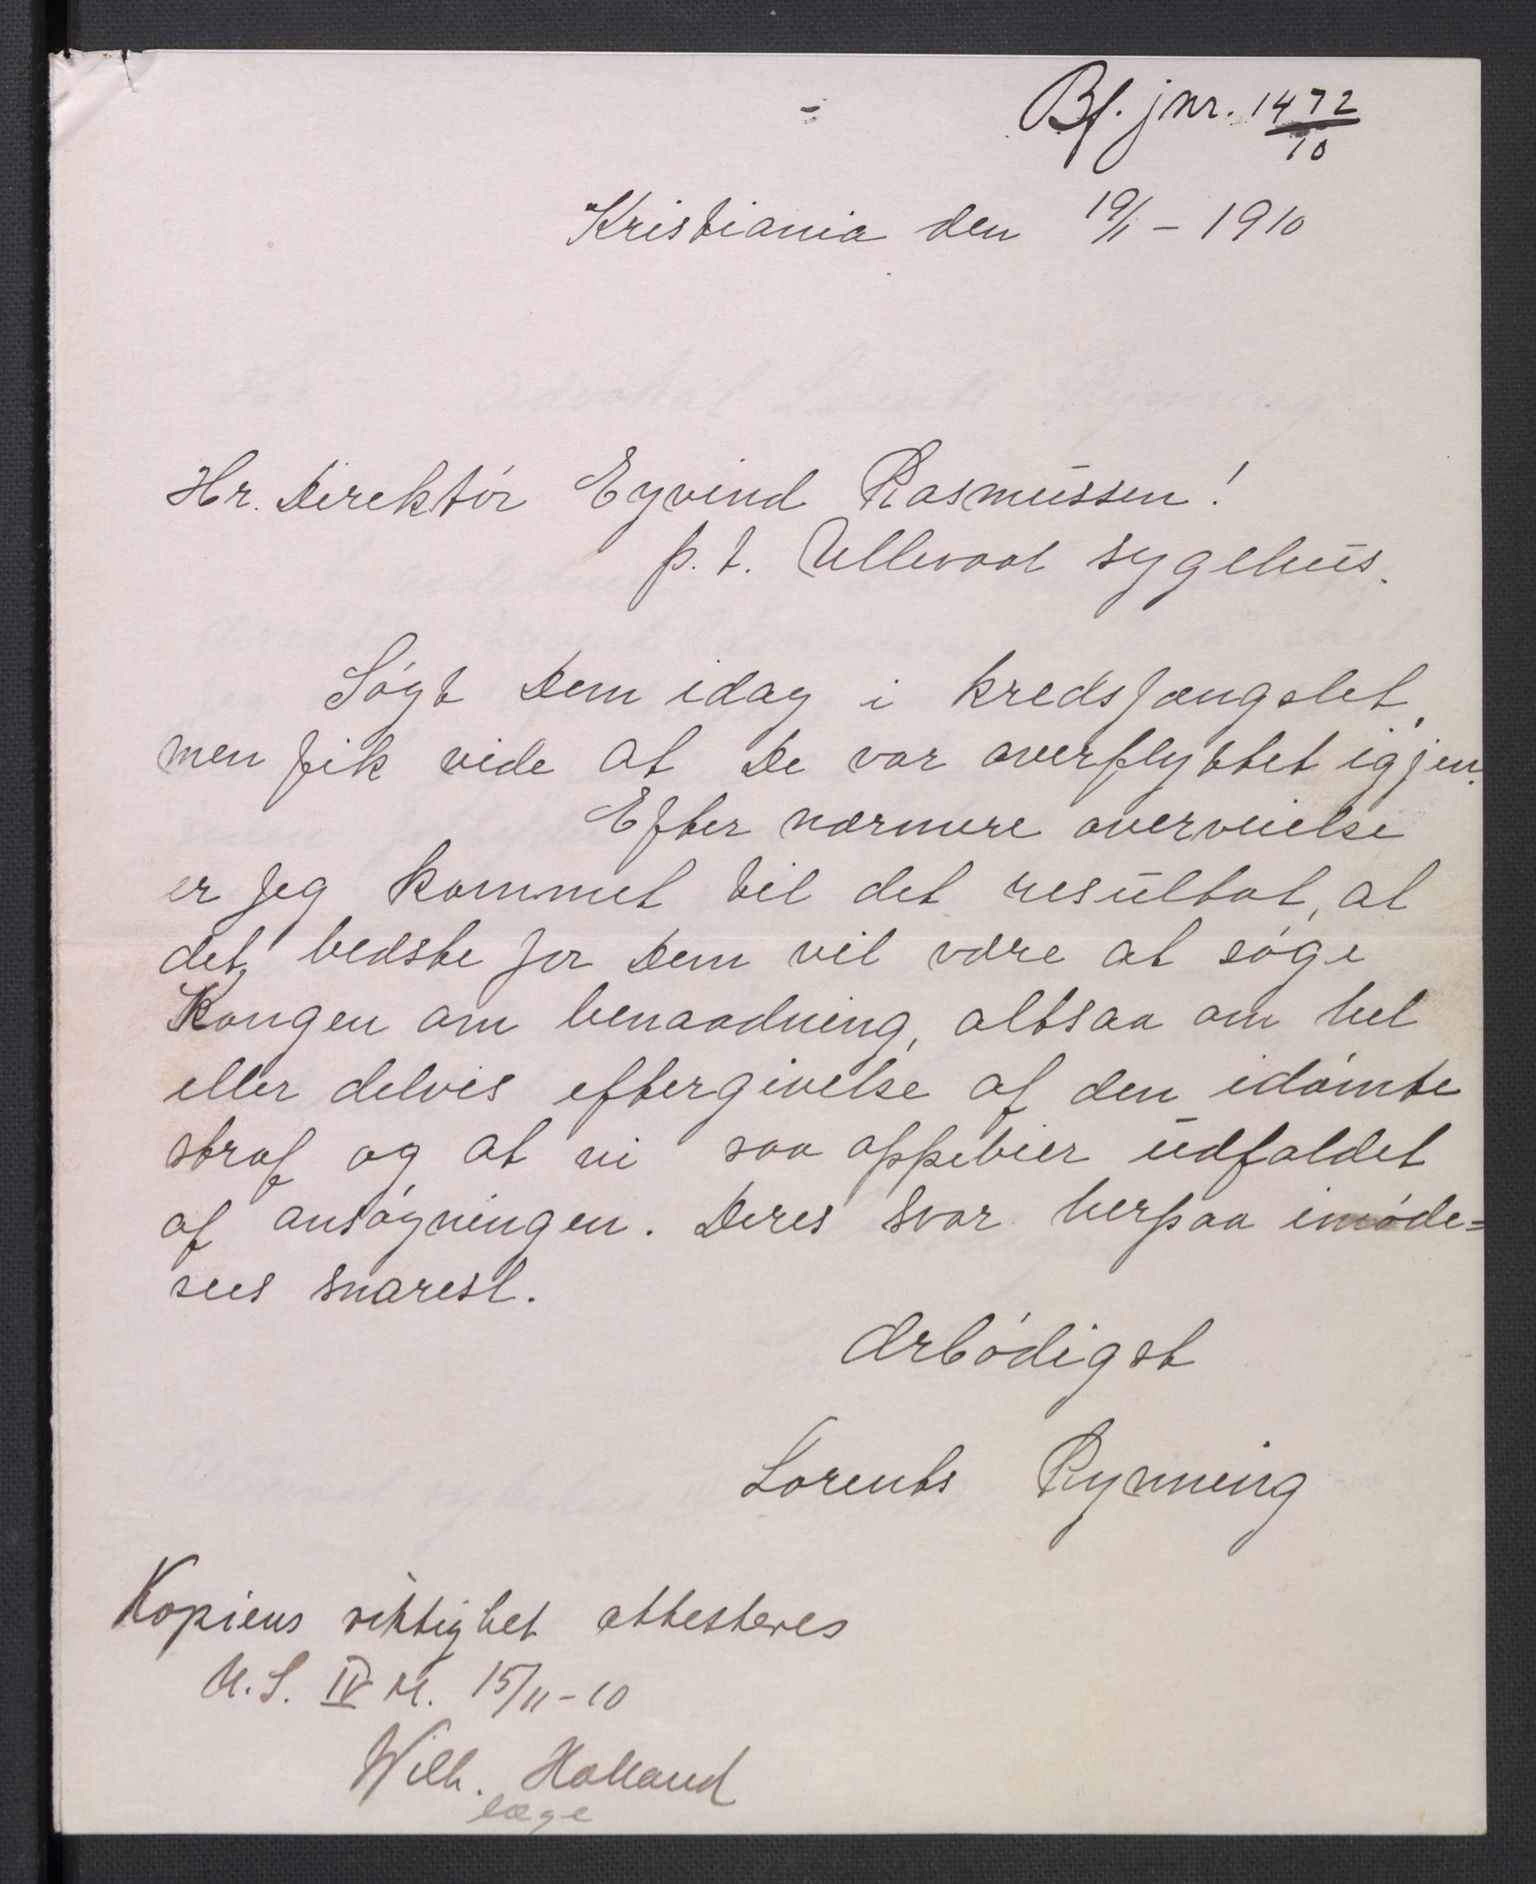 Bf. jnr. 1472/10
Kristiania den 19/1 - 1910
Hr. Direktór Eyvind Rasmussen!
p. t. Ullevaal sygehus.
Søgt Dem idag i kredsfængslet,
men fik vide at De var overflyttet igjen.
Efter nærmere overveielse
er jeg kommet til det resultat, at
det bedste for Dem vil være at søge
Kongen om benaadning, altsaa om hel
eller delvis eftergivelse af den idømte
straf og at vi saa oppebier udfaldet
af ansøgningen. Deres svar herpaa imøde=
sees snarest.
Ærbødigst
Lorents Rynning
Kopiens riktighet attesteres
U.S. IV M. 15/11-10
Wilh. Holland
læge